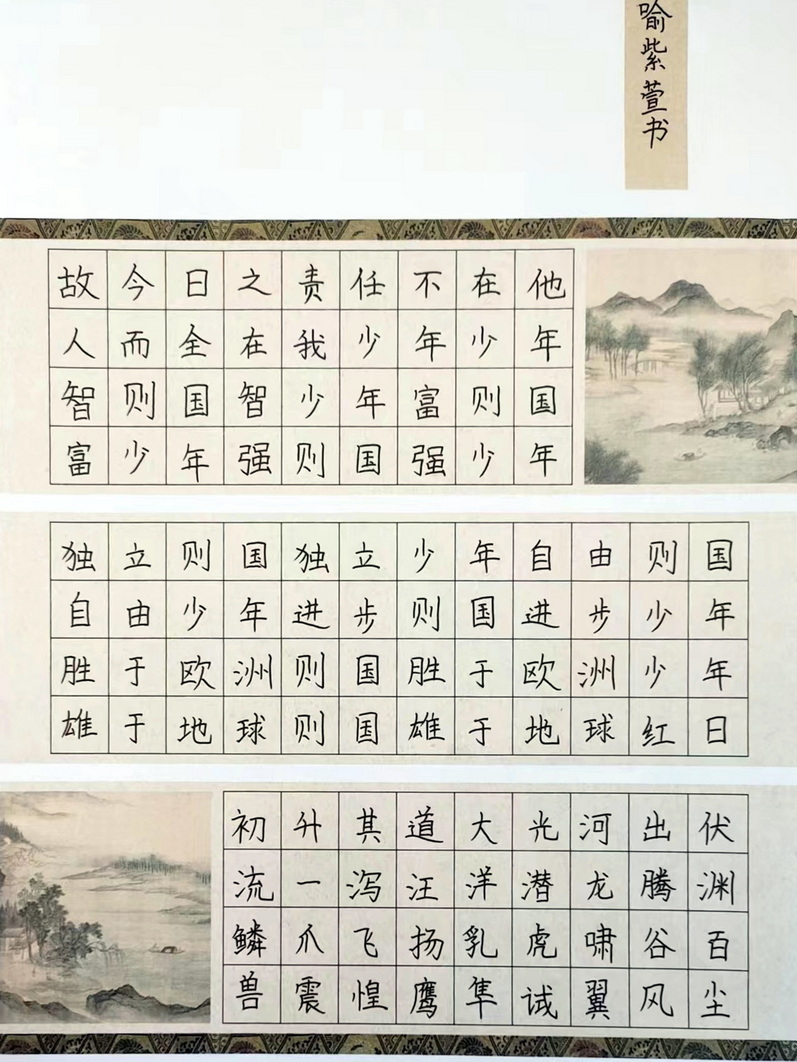 喻紫萱书
故今日之责任不在他
人而全在我少年少年
智则国智少年富则国
富少年强则国强少年
独立则国独立少年自由则国
自由少年进步则国进步少年
胜于欧洲则国胜于欧洲少年
雄于地球则国雄于地球红日
初升其道大光河出伏
流一泻汪洋潜龙腾渊
鳞爪飞扬乳虎啸谷百
兽震惶鹰隼试翼风尘